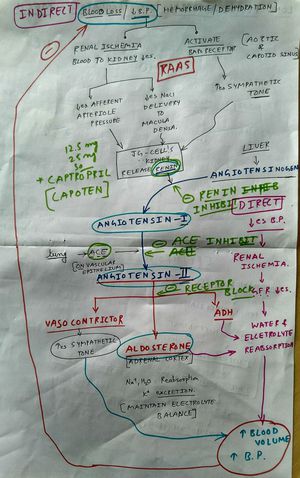 INDIRECT
BLOOD LOSS / ↓ B.P. [HEMORRHAGE / DEHYDRATION]
RENAL ISCHEMIA
BLOOD TO KIDNEY ↓es.
ACTIVATE
BARORECEPTOR
[AORTIC &
CAROTID SINUS]
RAAS
↓es AFFERENT
ARTERIOLE
PRESSURE
↓es NaCl
DELIVERY
TO
MACULA
DENSA.
↑es SYMPATHETIC
TONE
12.5 mg
25 mg
50
+ CAPTROPRIL
[CAPOTEN]
JG-CELL'S
KIDNEY
RELEASE RENIN
LIVER
ANGIOTENSINOGEN
⊖ RENIN
INHIBI
DIRECT
ANGIOTENSIN-I
↓es B.P.
lung
ACE
(ON VASCULAR
EPITHELIUM)
⊖ ACE INHI
RENAL
ISCHEMIA.
ANGIOTENSIN-II
⊖ RECEPTOR
BLOCK
G.F.R ↓es.
VASO CONTRICTOR
ADH
↑es SYMPATHETIC
TONE
ALDOSTERONE
ADRENAL CORTEX
WATER &
ELECTROLYTE
REABSORPTION
Na+, H2O Reabsorption
K+ EXCRETION.
[MAINTAIN ELECTROLYTE
BALANCE]
↑ BLOOD
VOLUME
↑ B.P.